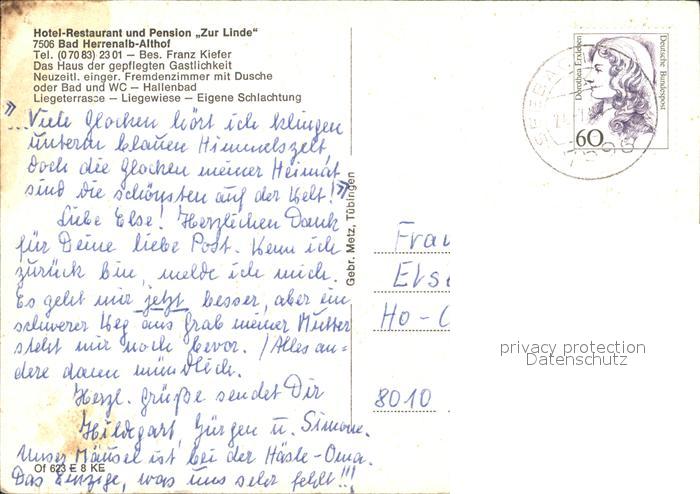 Hotel-Restaurant und Pension „Zur Linde“
7506 Bad Herrenalb-Althof
Tel. (070 83) 23 01 — Bes. Franz Kiefer
Das Haus der gepflegten Gastlichkeit
Neuzeitl. einger. Fremdenzimmer mit Dusche
oder Bad und WC — Hallenbad
Liegeterrasse — Liegewiese — Eigene Schlachtung
"...Viele Glocken hört ich klingen
unterm blauen Himmelszelt
doch die Glocken meiner Heimat
sind die schönsten auf der Welt!"
Liebe Else! Herzlichen Dank
für Deine liebe Post. Wenn ich
zurück bin, melde ich mich.
Es geht mir jetzt besser, aber ein
schwerer Weg ans Grab meiner Mutter
steht mir noch bevor. / Alles an=
dere dann mündlich.
Herzl. Grüße sendet Dir
Hildegart, Jürgen u. Simone.
Unser Mäusel ist bei der Häsle-Oma.
Das Einzige, was uns sehr fehlt!!!
Of 623 E 8 KE
Gebr. Metz, Tübingen
Dorothea Erxleben
Deutsche Bundespost
60
Frau
Else
Ho-
8010
privacy protection
Datenschutz